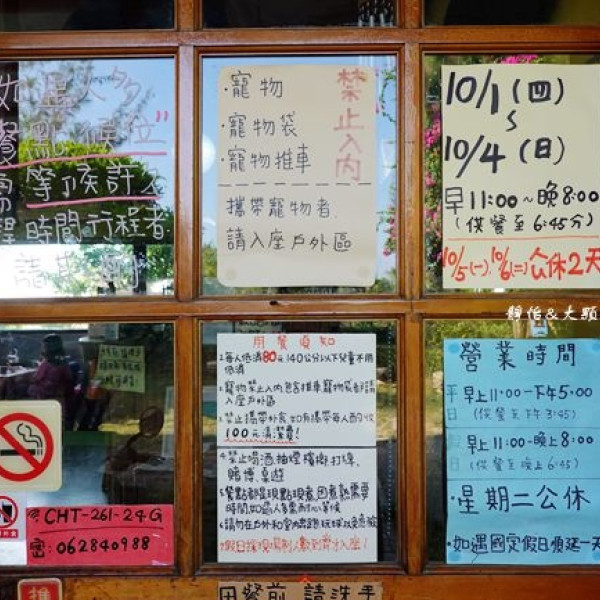 點候位"
等候許久
時間行程者
·寵物
·寵物袋
·寵物推車
禁止入內
攜帶寵物者,
請入座戶外區
10/1(四)
~
10/4(日)
早11:00~晚8:00
(供餐至6:45分)
10/5(一),10/6(二)公休2天
靜怡&大顆
用餐須知
1.每人低消80元,140公分以下兒童不用
低消
2.寵物禁止入內,包括推車,寵物袋,都請
入座戶外區
3.禁止攜帶外食,如有攜帶每人酌收
100元清潔費!
4.禁止喝酒.抽煙.檳榔.打牌.
賭博.桌遊
5.餐點都是現點現煮,因煮熟需要
時間,如遇人多需耐心等候
6.請勿在戶外和室內奔跑
7.假日按現場到人數到齊才入座!
營業時間
平日
早上11:00-下午5:00
(供餐至下午3:45)
早上11:00-晚上8:00
(供餐至晚上6:45)
·星期二公休
·如遇國定假日順延一天
CHT-261-24G
密:062840988
推
用餐前 請洗手